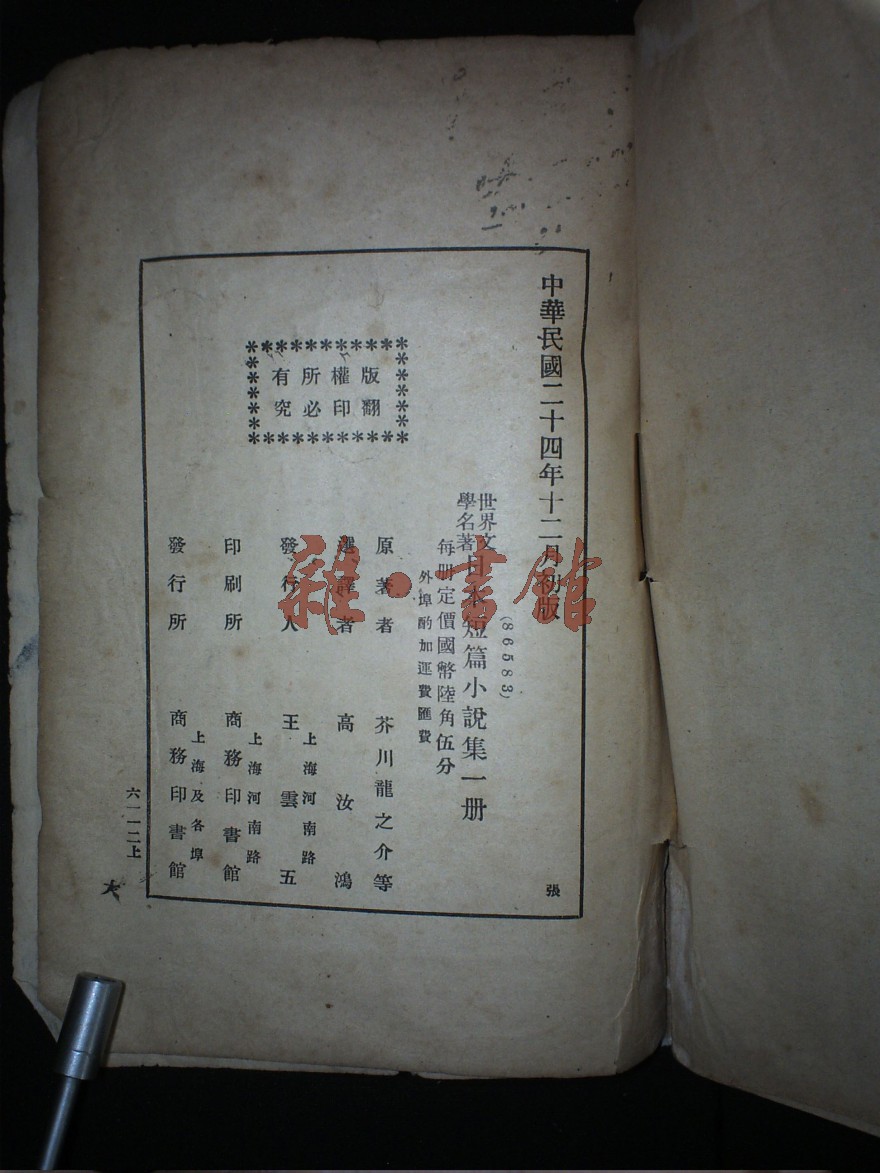 中華民國二十四年十二月初版
(86583)
世界文
學名著
日本短篇小說集一册
每册定價國幣陸角伍分
外埠酌加運費匯費
版權所有
翻印必究
原著者 芥川龍之介等
選譯者 高汝鴻
發行人 王雲五
上海河南路
印刷所 商務印書館
上海河南路
發行所 商務印書館
上海及各埠
張
六一一二上
大
雜·書館